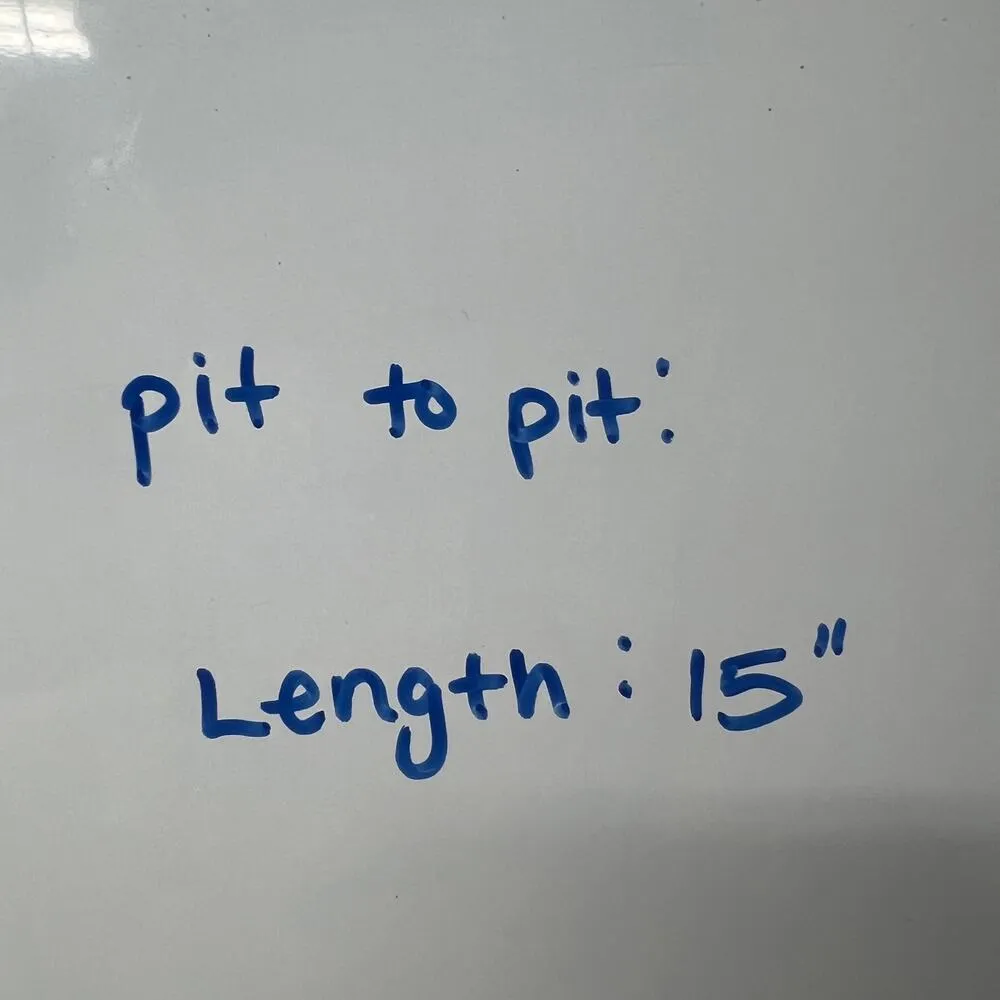 pit to pit:
Length: 15"